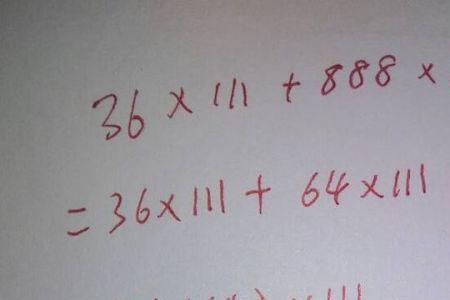 36 × 111 + 888 ×
= 36×111 + 64×111